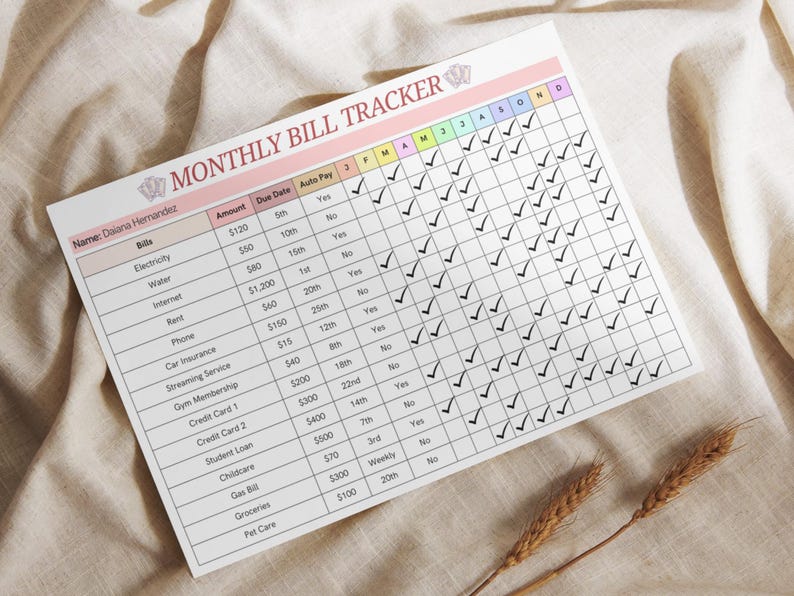 MONTHLY BILL TRACKER
Name: Daiana Hernandez
Bills Amount Due Date Auto Pay J F M A M J J A S O N D
Electricity $120 5th Yes
Water $50 10th No
Internet $80 15th Yes
Rent $1,200 1st No
Phone $60 20th
Car Insurance $150 25th
Streaming Service $15 12th Yes
Gym Membership $40 8th Yes
Credit Card 1 $200 18th No
Credit Card 2 $300 22nd
Student Loan $400 14th Yes
Childcare $500 7th No
Gas Bill $70 3rd Yes
Groceries $300 Weekly No
Pet Care $100 20th No